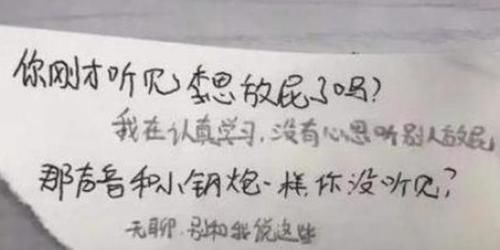 你刚才听见李思放屁了吗?
我在认真学习,没有心思听别人放屁
那声音和小钢炮一样你没听见?
无聊.别和我说这些